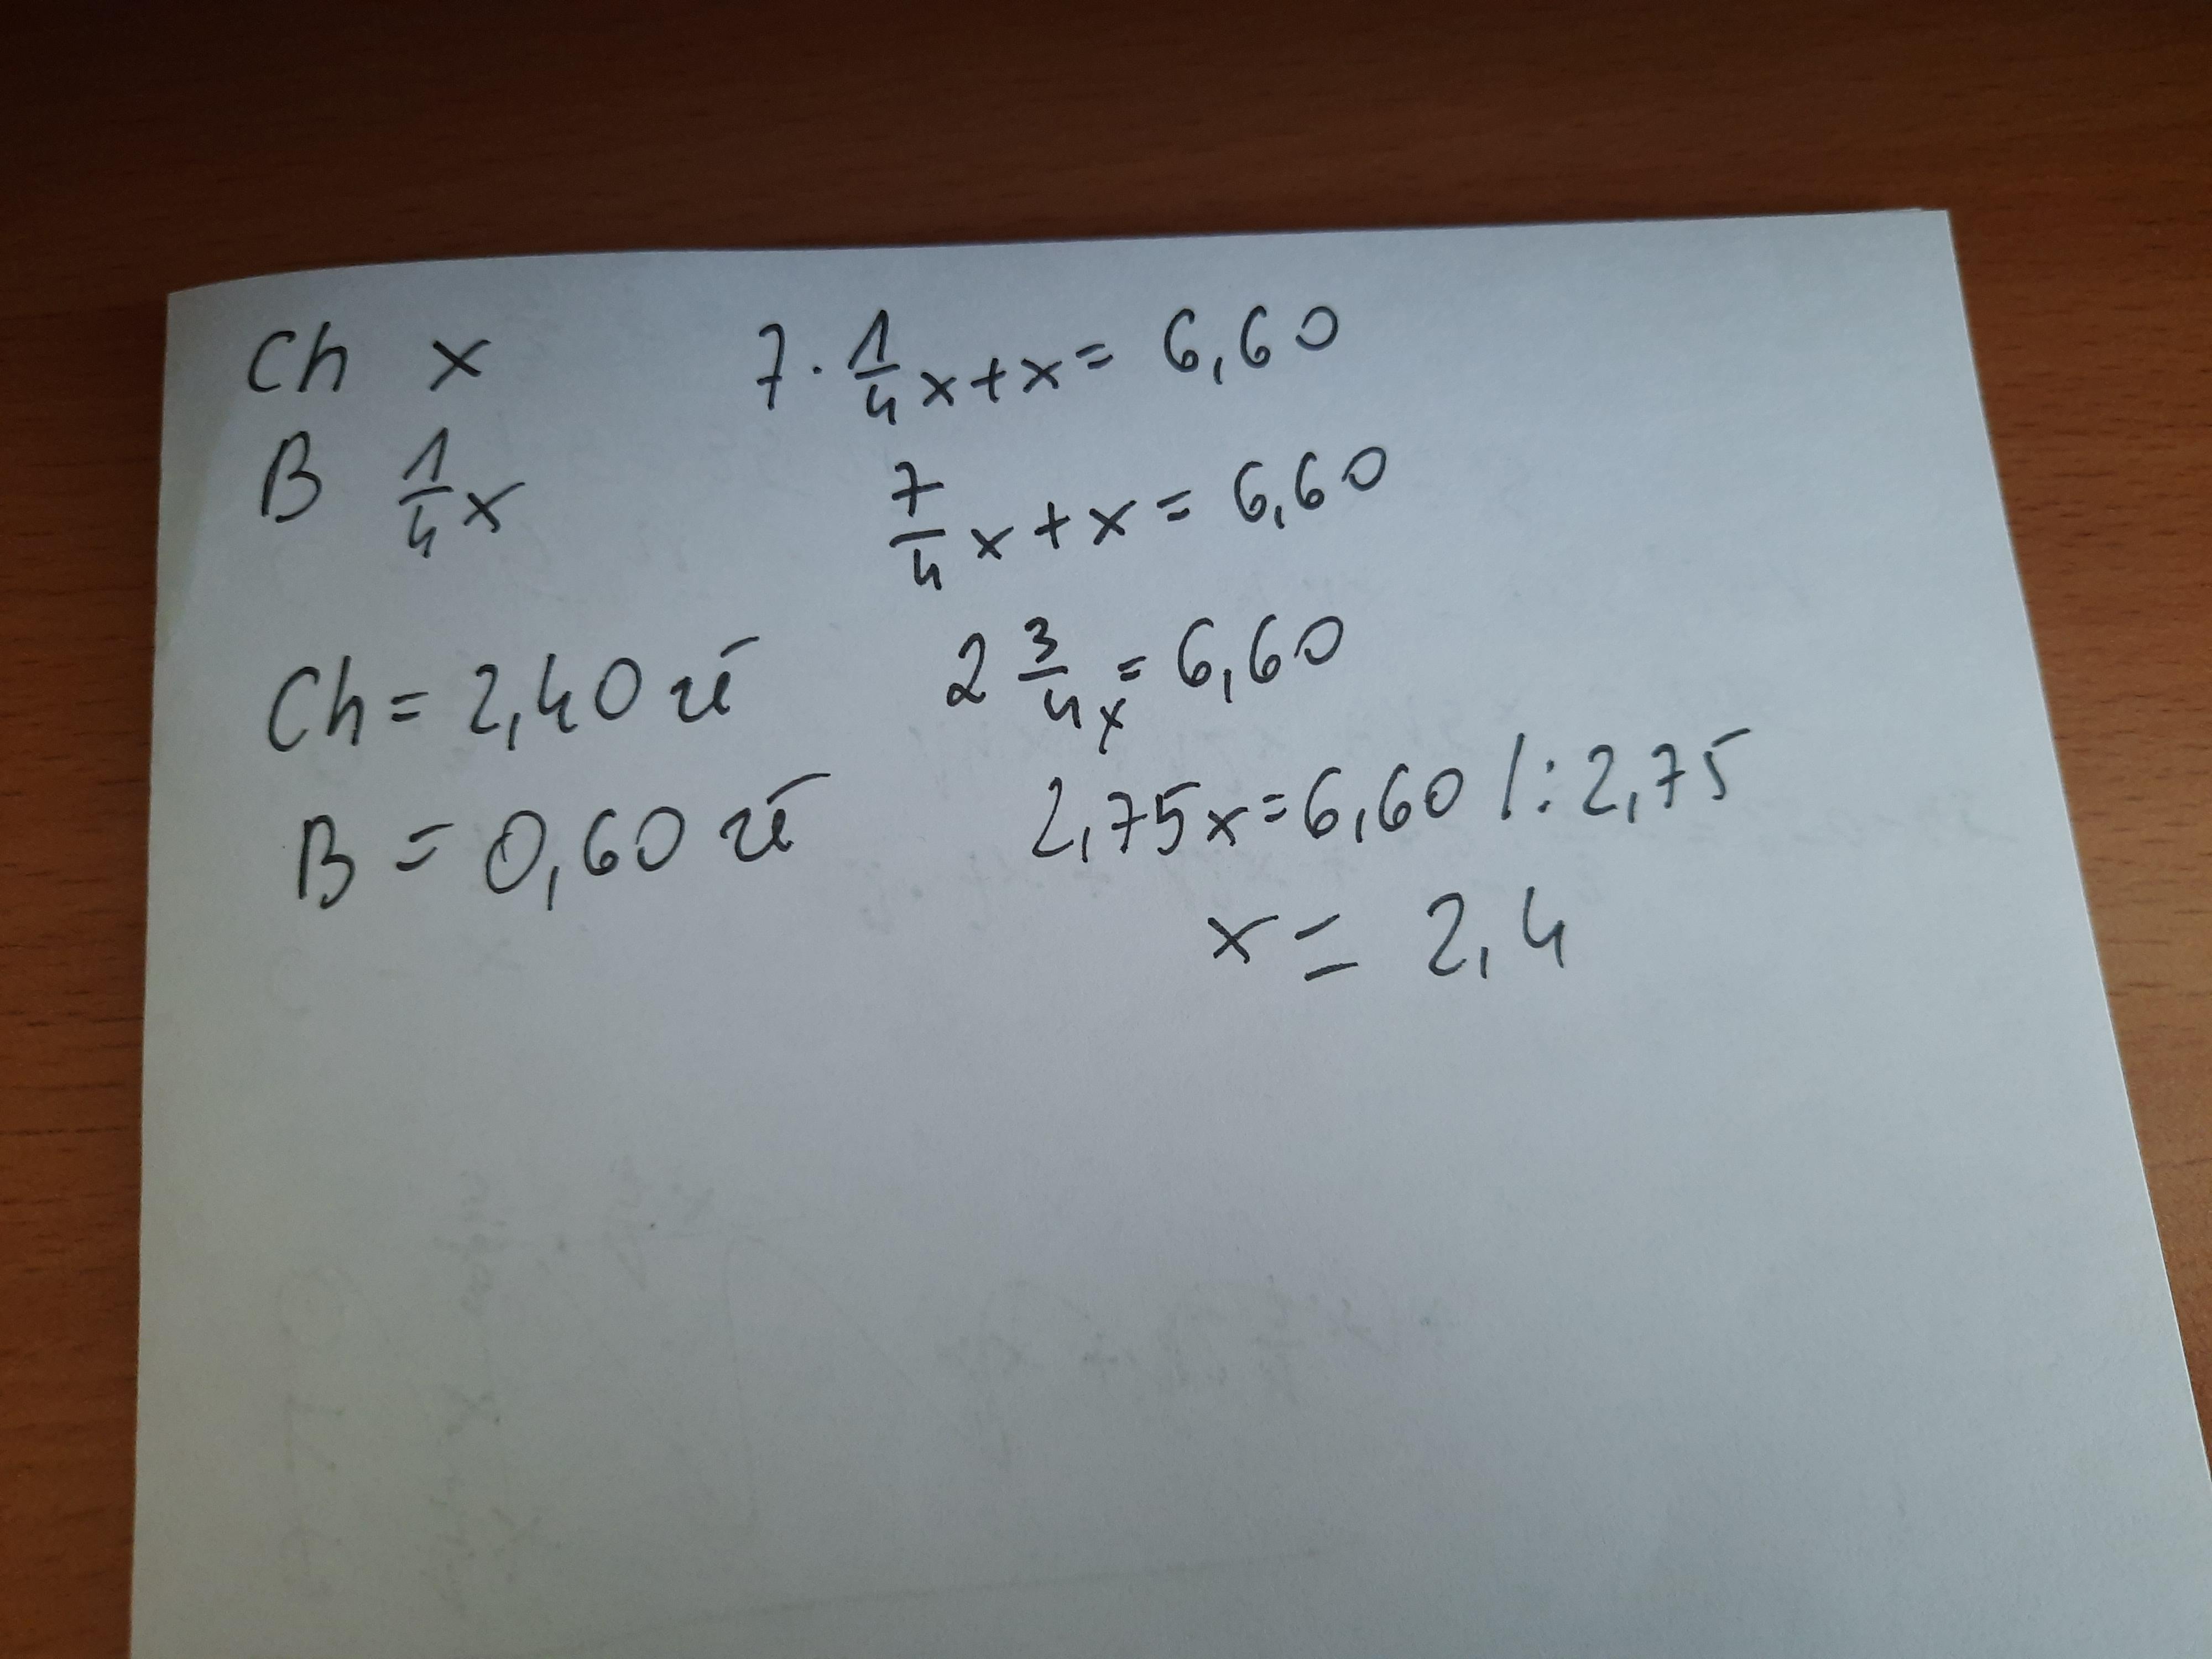 Ch x
B 1/4 x
Ch = 2,40 zł
B = 0,60 zł
7 · 1/4 x + x = 6,60
7/4 x + x = 6,60
2 3/4 x = 6,60
2,75x = 6,60 /: 2,75
x = 2,4